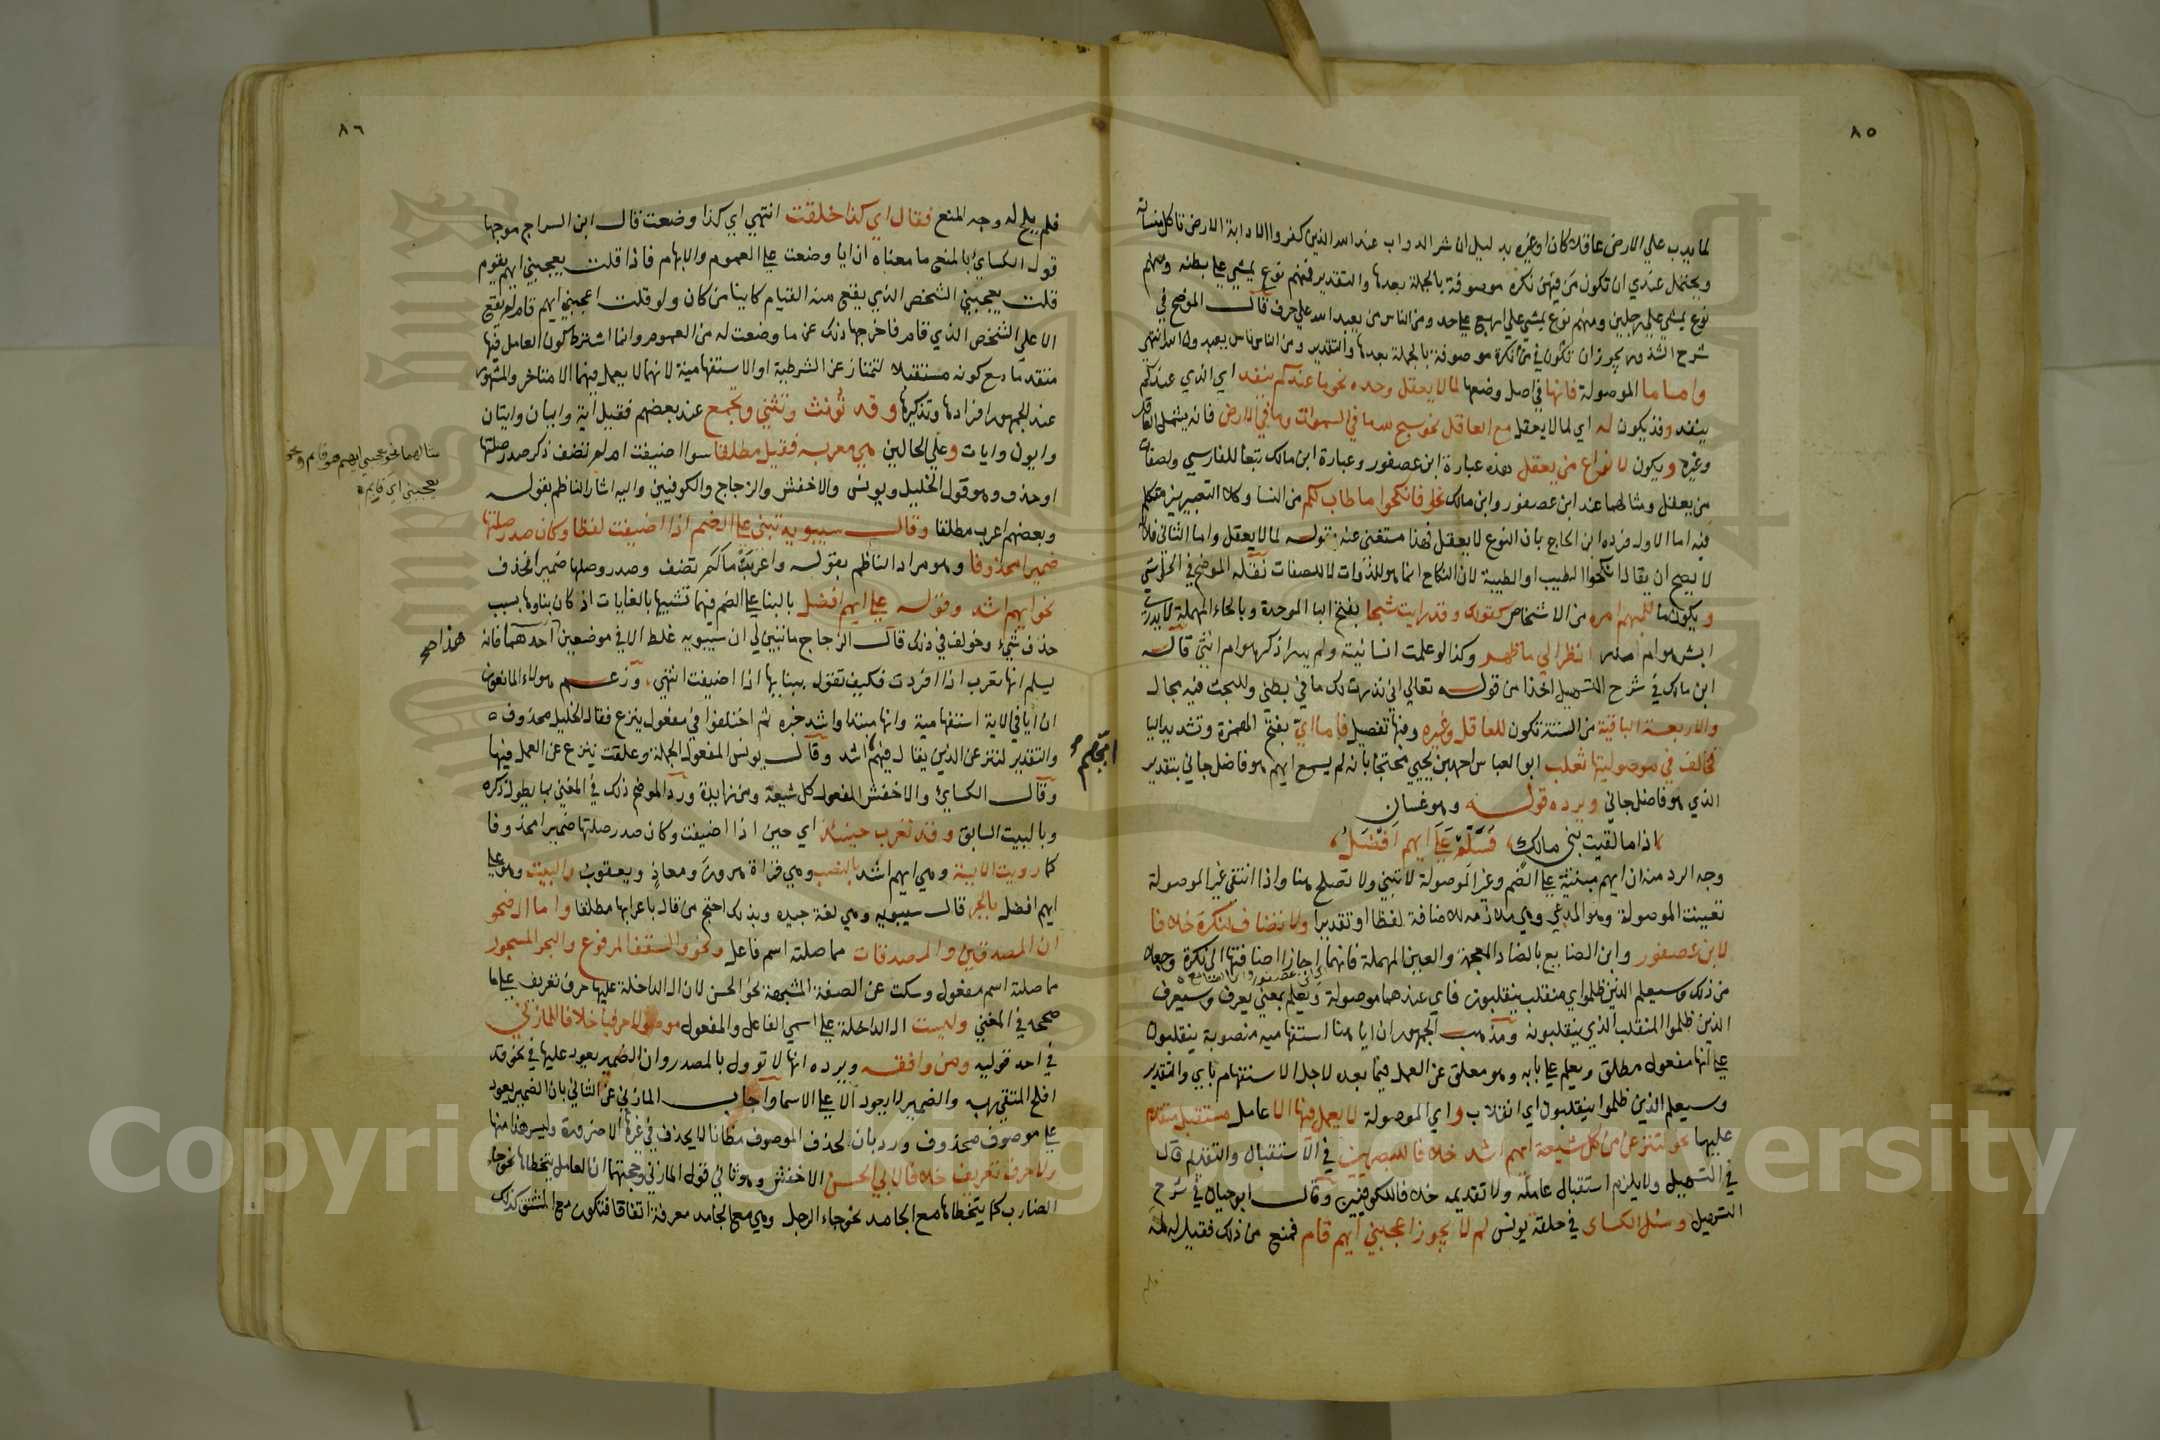 ٨٥
لما يدب علي الارض عاقلا كان او غيره بدليل ان شر الدواب عند الله الذين كفروا الا دابة الارض تاكل منساته
ويحتمل عندي ان تكون من فيهن نكره موصوفة بالجملة بعدها والتقدير فمنهم نوع يمشي علي بطنه ومنهم
نوع يمشي علي رجلين ومنهم نوع يمشي علي اربع علي حد ومن الناس من يعبد الله علي حرف قال الموضح في
شرح الشذور يجوز ان تكون في من نكرة موصوفة بالجملة بعدها والتقدير ومن الناس ناس يعبدون الله انتهي
واما ما الموصولة فانها في اصل وضعها لما لا يعقل وحده نحو ما عندكم ينفد اي الذي عندكم
ينفد وقد يكون له اي لما لا يعقل مع العاقل نحو سبح لله ما في السموات وما في الارض فانه يشمل العاقل
وغيره ويكون لانواع من يعقل هذه عبارة ابن عصفور وعبارة ابن مالك تبعا للفارسي ولصفات
من يعقل ومثالهما عند ابن عصفور وابن مالك نحو فانكحوا ما طاب لكم من النسا وكلا التعبيرين مشكل
فيه اما الاول فرده ابن الحاجب بان النوع لا يعقل فهذا مستغني عنه بقوله لما لا يعقل واما الثاني فلانه
لا يصح ان يقال انكحوا الطيب او الطيبة لان النكاح انما هو للذوات لا للصفات نقله الموضح في الحواشي
ويكون ما للمبهم امره من الاشخاص كقولك وقد رايت شبحا بفتح البا الموحدة وبالحاء المهملة لا يدري
ابشر هو ام انظر الي ما ظهر وكذا لو علمت انسانيته ولم يدر اذكر هو ام انثي قاله
ابن مالك في شرح التسهيل اخذا من قوله تعالي اني نذرت لك ما في بطني وللبحث فيه مجال
والاربعة الباقية من الستة تكون للعاقل وغيره وفيها تفصيل فاما اي بفتح الهمزة وتشديد اليا
فخالف في موصوليتها ثعلب ابو العباس احمد بن يحيي محتجا بانه لم يسمع ايهم هو فاضل جاني بتقدير
الذي هو فاضل جاني ويرده قوله وهو غسان
اذا ما لقيت بني مالك فسلم علي ايهم افضل
وجه الرد منه ان ايهم مبنية علي الضم وغير الموصولة لا تبني ولا تصلح هنا واذا انتفي غير الموصولة
تعينت الموصولة وهو المدعي وهي ملازمة للاضافة لفظا او تقديرا ولا تضاف لنكرة خلافا
لابن عصفور وابن الضايع بالضاد المعجمة والعين المهملة فانهما اجازا اضافتها الي نكرة وجعلا
اي ابن عصفور وابن الضايع
من ذلك وسيعلم الذين ظلموا اي منقلب ينقلبون فاي عندهما موصولة ويعلم بمعني يعرف وسيعرف
الذين ظلموا المنقلب الذي ينقلبونه ومذهب الجمهور ان ايا هنا استفهامية منصوبة بينقلبون
علي انها مفعول مطلق ويعلم علي بابه وهو معلق عن العمل فيما بعده لاجل الاستفهام باي والتقدير
وسيعلم الذين ظلموا ينقلبون اي انقلاب واي الموصولة لا يعمل فيها الا عامل مستقبل متقدم
عليها نحو لننزعن من كل شيعة ايهم اشد خلافا للبصريين في الاستقبال والتقديم قال
في التسهيل ولا يلزم استقبال عامله ولا تقديمه خلافا للكوفيين وقال ابو حيان في شرح
التسهيل وسئل الكساي في حلقة يونس لم لا يجوز اعجبني ايهم قام فمنع من ذلك فقيل له لمه
٨٦
فلم يلح له وجه المنع فقال اي كذا خلقت انتهي اي كذا وضعت قال ابن السراج موجها
قول الكساي بالمنع ما معناه ان ايا وضعت علي العموم والابهام فاذا قلت يعجبني ايهم يقوم
قلت يعجبني الشخص الذي يقع منه القيام كاينا من كان ولو قلت اعجبني ايهم قام لم يقع
الا علي الشخص الذي قام فاخرجها ذلك عن ما وضعت له من العموم وانما اشترط كون العامل فيها
متقدما مع كونه مستقبلا لتمتاز عن الشرطية او الاستفهامية لانهما لا يعمل فيهما الا متاخر والمشهور
عند الجمهور افرادها وتذكيرها وقد تؤنث وتثني وتجمع عند بعضهم فقيل اية وايان وايتان
وايون وايات وعلي الحالين هي معربه فقيل مطلقا سوا اضيفت ام لم تضف ذكر صدر صلتها
اوحذف وهو قول الخليل ويونس والاخفش والزجاج والكوفيين واليه اشار الناظم بقوله
مثالهما نحو يعجبني ايهم هو قايم ونحو
يعجبني اي قايم
وبعضهم اعرب مطلقا وقال سيبويه تبني علي الضم اذا اضيفت لفظا وكان صدر صلتها
ضميرا محذوفا وهو مراد الناظم بقوله واعربت ما لم تضف وصدر وصلها ضمير انحذف
نحو ايهم اشد وقوله علي ايهم افضل بالبنا علي الضم فيهما تشبيها بالغايات اذ كان بناوها بسبب
حذف شيء وخولف في ذلك قال الزجاج ما تبين لي ان سيبويه غلط الا في موضعين احدهما فانه
هذا صح
يسلم انها تعرب اذا افردت فكيف تقول ببنايها اذا اضيفت انتهي وزعم هولاء المانعون
ان ايا في الاية استفهامية وانها مبتدا واشد خبره ثم اختلفوا في مفعول ينزع فقال الخليل محذوف
والتقدير لننزعن الذين يقال فيهم اشد وقال يونس المفعول الجملة وعلقت ننزع عن العمل فيها
ايهم صح
وقال الكساي والاخفش المفعول كل شيعة ومن زايدة ورد الموضح ذلك في المغني بما يطول ذكره
وبالبيت السابق وقد تعرب حينئذ اي حين اذا اضيفت وكان صدر صلتها ضميرا محذوفا
كما رويت الاية وهي ايهم اشد بالنصب وهي قراة هرون ومعاذ ويعقوب والبيت وهو علي
ايهم افضل بالجر قال سيبويه وهي لغة جيده وبذلك احتج من قال باعرابها مطلقا واما ال فنحو
ان المصدقين والمصدقات مما صلته اسم فاعل ونحو والسقف المرفوع والبحر المسجور
مما صلته اسم مفعول وسكت عن الصفة المشبهة نحو الحسن لان ال الداخلة عليها حرف تعريف علي ما
صححه في المغني وليست ال الداخلة علي اسمي الفاعل والمفعول موصولا حرفيا خلافا للمازني
في احد قوليه ومن وافقه ويرده انها لا تؤول بالمصدر وان الضمير يعود عليها في نحو قد
افلح المتقي ربه والضمير لا يعود الا علي الاسما واجاب المازني عن الثاني بان الضمير يعود
علي موصوف محذوف ورد بان لحذف الموصوف مظانا لا يحذف في غيرها الا ضرورة وليس هذا منها
ولا حرف تعريف خلافا لابي الحسن الاخفش وهو ثاني قولي المازني وحجتهما ان العامل يتخطاها نحو جاء
الضارب كما يتخطاها مع الجامد نحو جاء الرجل وهي مع الجامد معرفة اتفاقا فتكون مع المشتق كذلك
Copyright © King Saud University